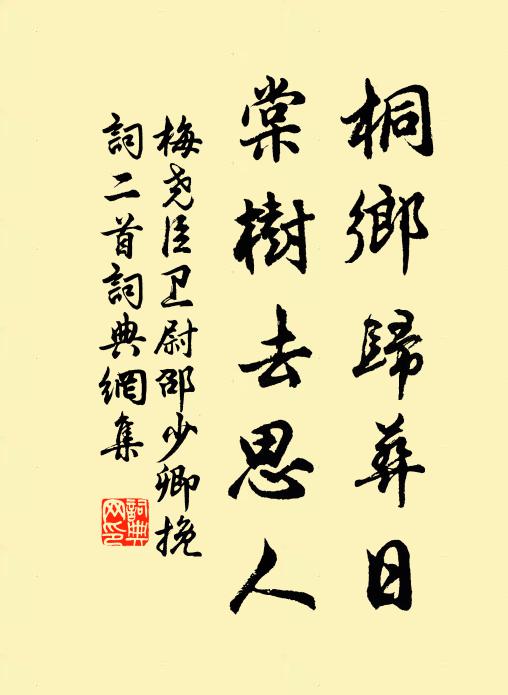 桐鄉歸葬日
棠樹去思人
梅尧臣卫尉邵少卿挽
詞二首詞典網集
詞典网印